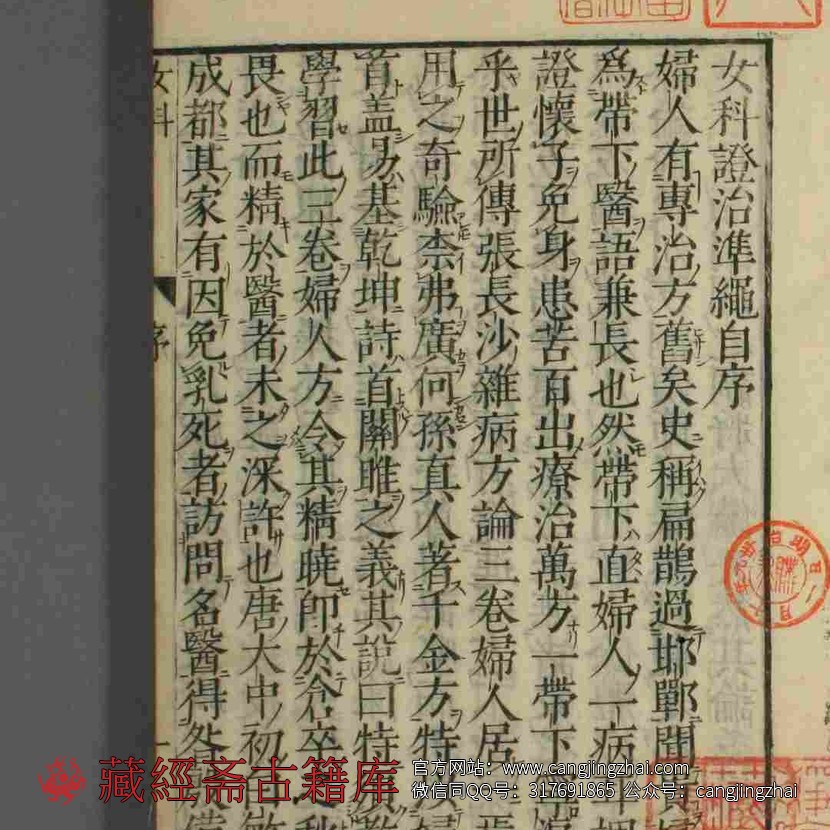 女科證治準繩自序
婦人有專治方舊矣史稱扁鵲過邯鄲聞
為帶下醫語兼長也然帶下直婦人一病
證懷子免身患苦百出療治萬方一帶下
乎世所傳張長沙雜病方論三卷婦人居
用之奇驗柰弗廣何孫真人著千金方特
首盖易基乾坤詩首關雎之義其說曰特
學習此三卷婦人方令其精曉即於倉卒
畏也而精於醫者未之深許也唐大中初
成都其家有因免乳死者訪問名醫得
女科
序
一
藏經斋古籍库
官方网站：www.cangjingzhai.com
微信同QQ号：317691865 公众号：cangjingzhai